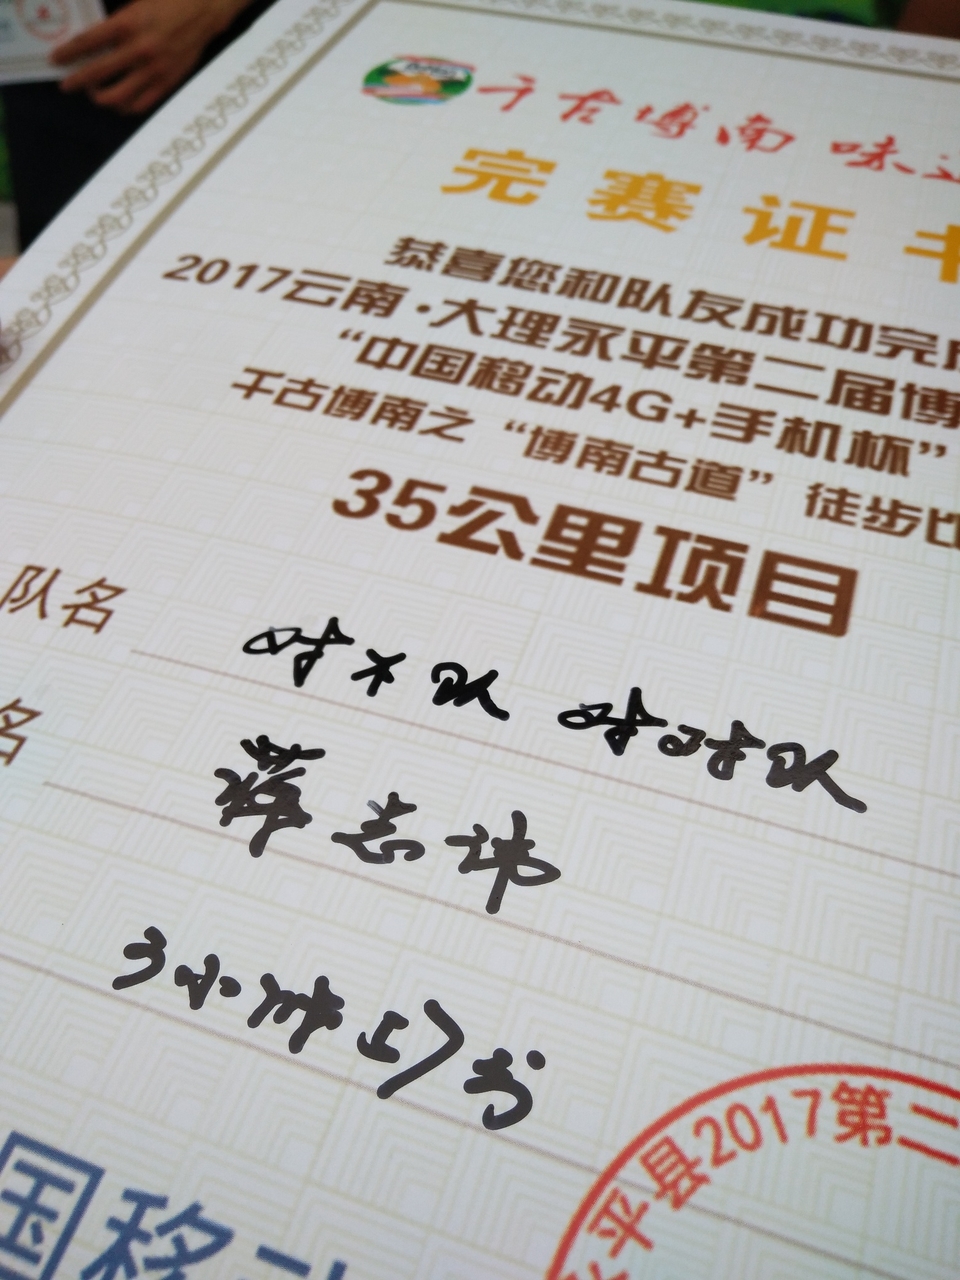 千古博南 味
完赛证书
恭喜您和队友成功完成
2017云南·大理永平第二届博
“中国移动4G+手机杯”
千古博南之 “博南古道” 徒步比
35公里项目
队名
对不队 对对队
名
薛志讳
3小时 57分
国移动
永平县2017第二